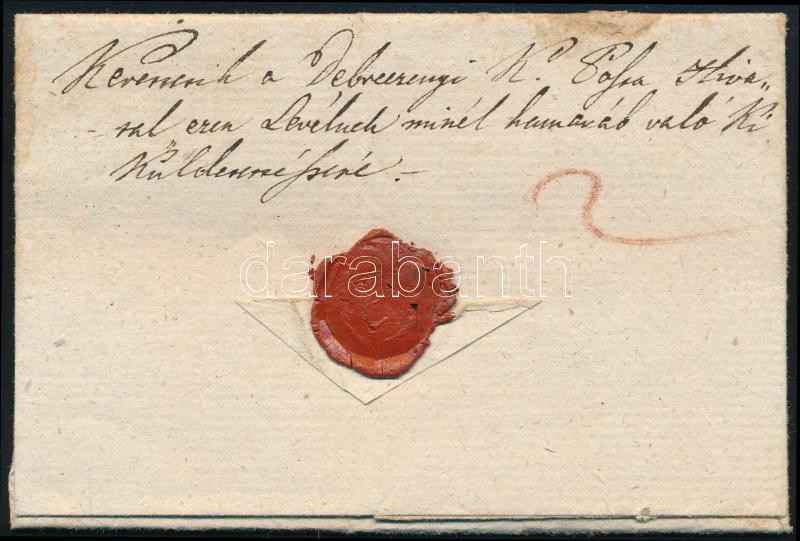 Keretetik a Debreczenyi K. Posta Hiva„
– tal ezen Levélnek minél hamaráb való Ki
Küldettetésére. –
2
darabanth